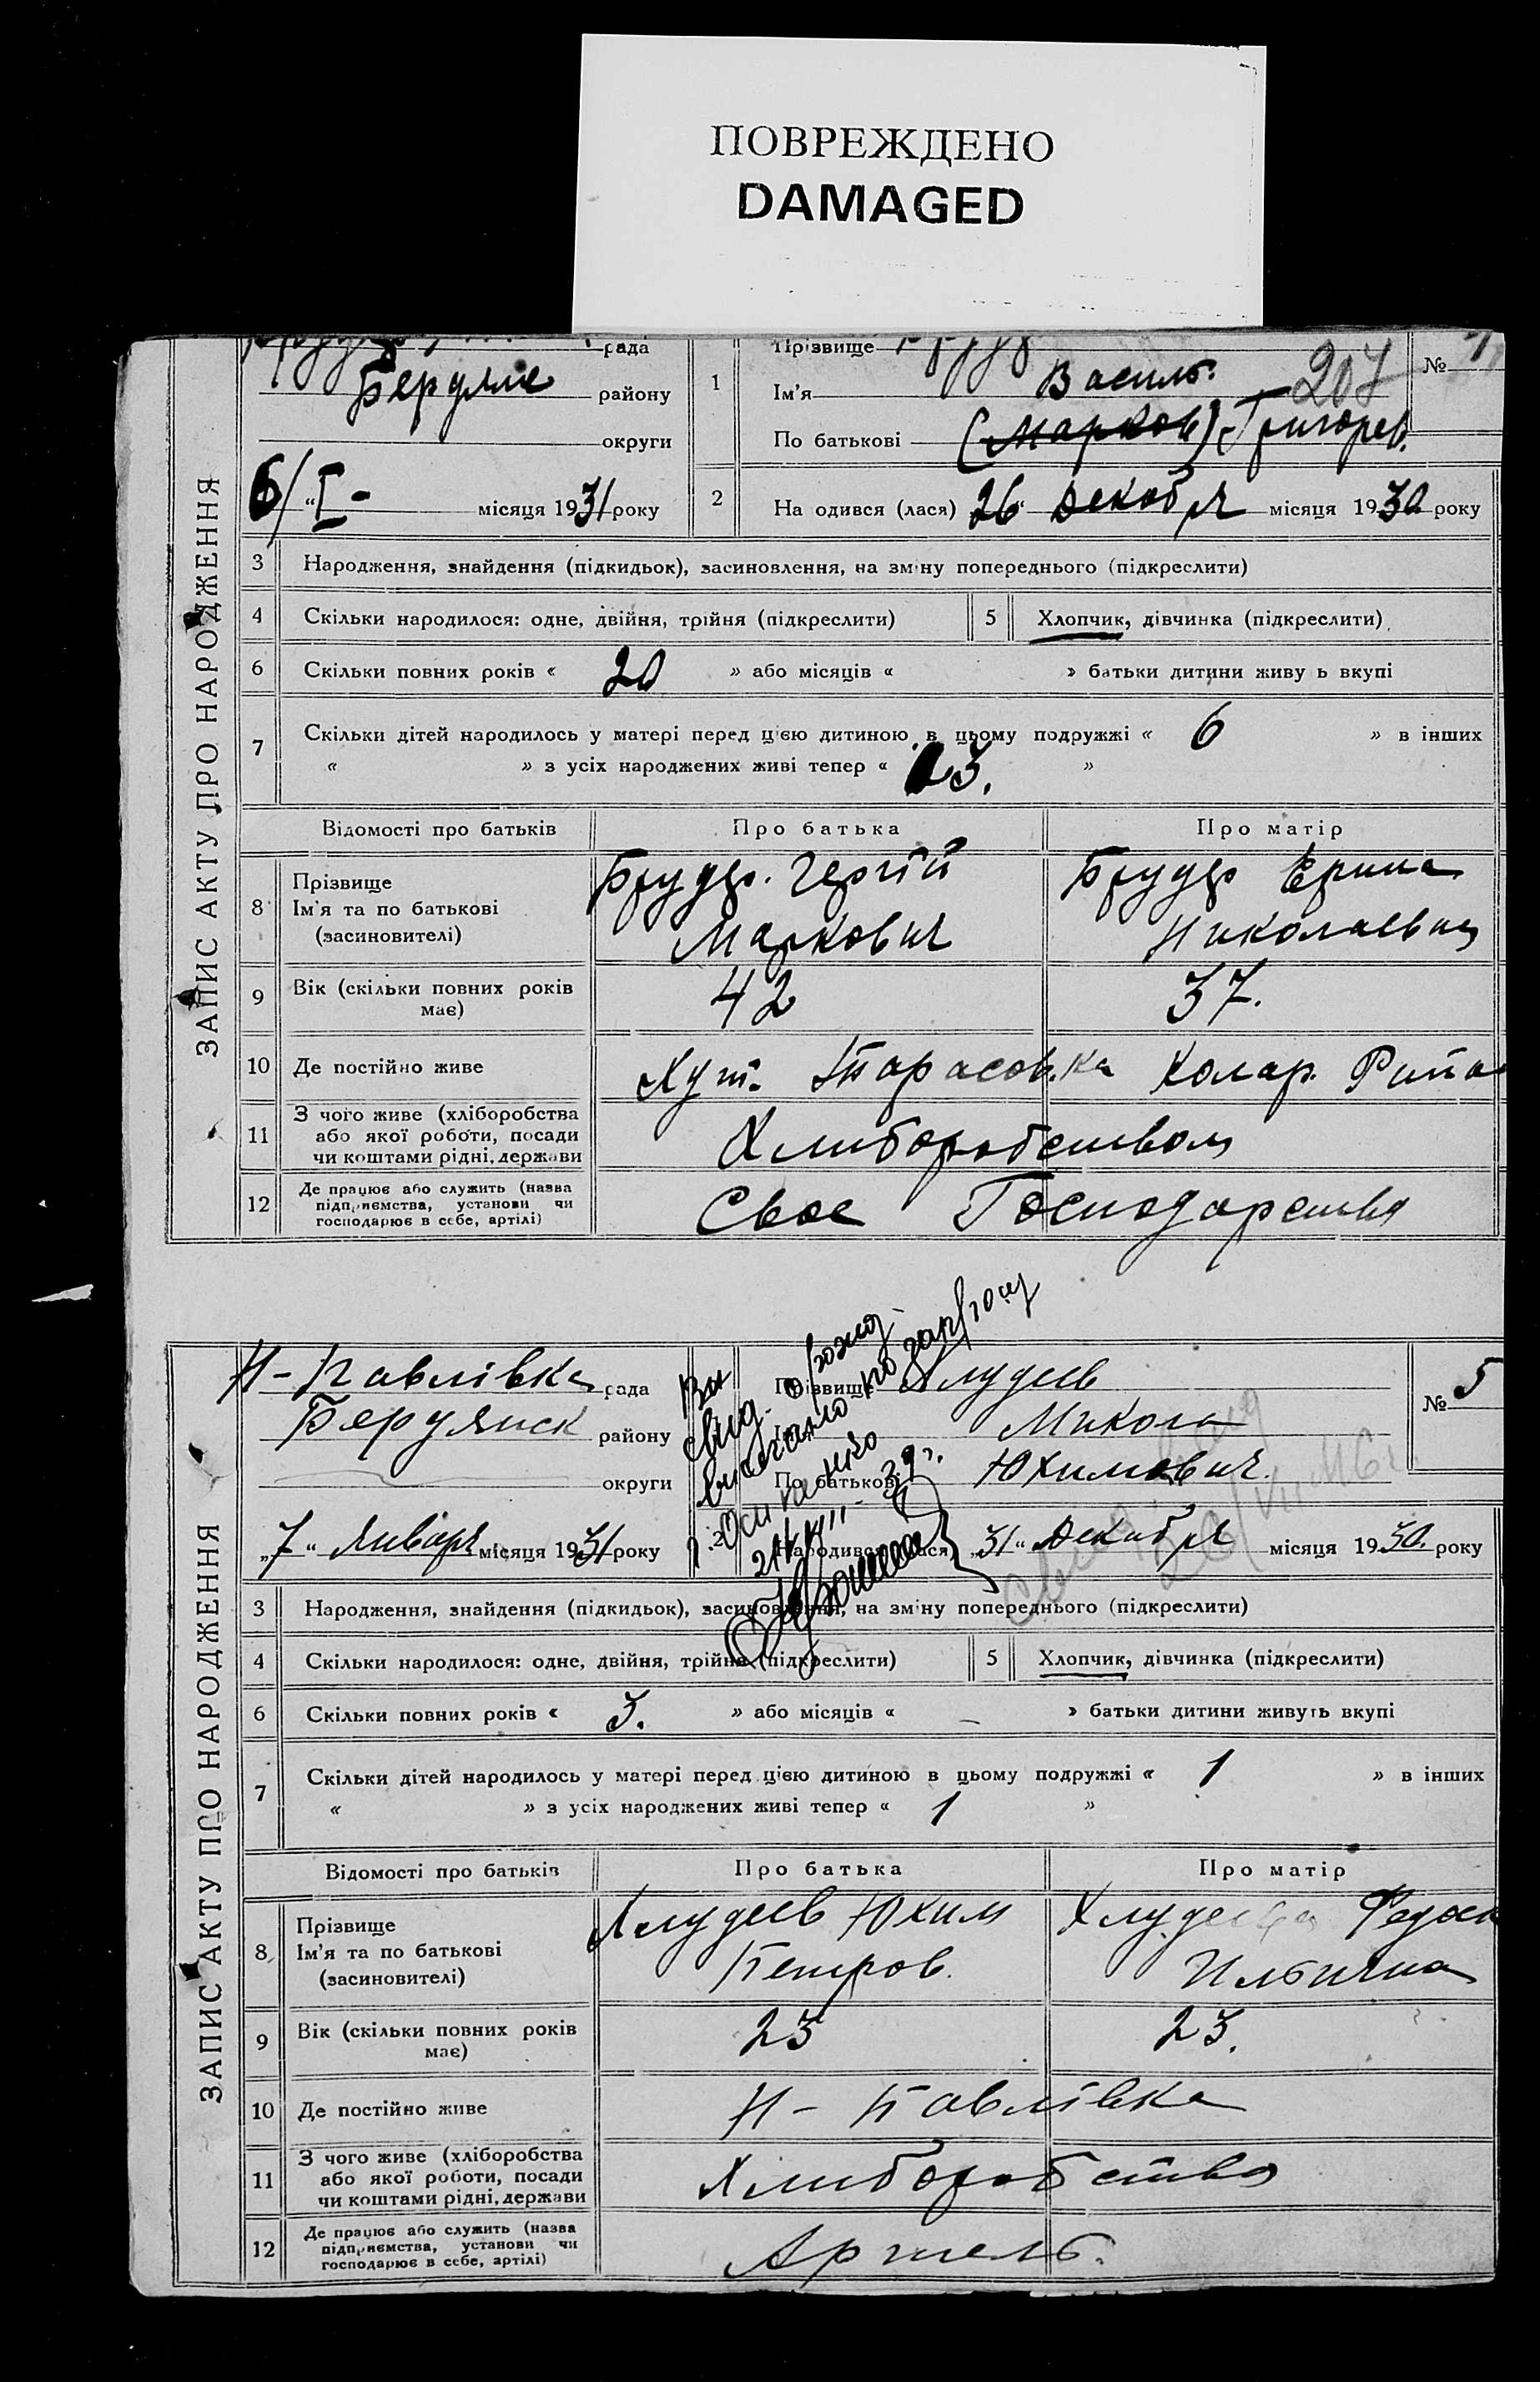 ПОВРЕЖДЕНО
DAMAGED
ЗАПИС АКТУ ПРО НАРОДЖЕННЯ
рада
району
округи
6/ „I- місяця 1931 року
1 Прізвище
Ім'я Василь. 207
По батькові (Марков) Григорев.
№
2 На одився (лася) 26 Декабря місяця 1930 року
3 Народження, знайдення (підкидьок), засиновлення, на зміну попереднього (підкреслити)
4 Скільки народилося: одне, двійня, трійня (підкреслити) 5 Хлопчик, дівчинка (підкреслити)
6 Скільки повних років « 20 » або місяців « » батьки дитини живу ь вкупі
7 Скільки дітей народилось у матері перед цією дитиною в цьому подружжі « 6 » в інших
« » з усіх народжених живі тепер « 3. »
Відомості про батьків Про батька Про матір
8 Прізвище
Ім'я та по батькові
(засиновителі)
Маркович
Николаевна
9 Вік (скільки повних років має) 42 37.
10 Де постійно живе Хут. Тарасовка Колар.
11 З чого живе (хліборобства
або якої роботи, посади
чи коштами рідні, держави
Хлиборобством
12 Де працює або служить (назва
підприємства, установи чи
господарює в себе, артілі)
Свое Господарство
ЗАПИС АКТУ ПРО НАРОДЖЕННЯ
Н-Павлівка рада
Бердянск району
округи
„7“ Января місяця 1931 року
Прізвище Хлудеев
Микола
По батькові Юхимович.
№ 5
2 Народився (лася) „31“ Декабря місяця 1930. року
3 Народження, знайдення (підкидьок), засиновлення, на зміну попереднього (підкреслити)
4 Скільки народилося: одне, двійня, трійня (підкреслити) 5 Хлопчик, дівчинка (підкреслити)
6 Скільки повних років « 3. » або місяців « – » батьки дитини живуть вкупі
7 Скільки дітей народилось у матері перед цією дитиною в цьому подружжі « 1 » в інших
« » з усіх народжених живі тепер « 1 »
Відомості про батьків Про батька Про матір
8 Прізвище
Ім'я та по батькові
(засиновителі)
Хлудеев Юхим
Петров.
Хлудеева
Ильична
9 Вік (скільки повних років має) 23 23.
10 Де постійно живе Н-Павлівка
11 З чого живе (хліборобства
або якої роботи, посади
чи коштами рідні, держави
Хлиборобство
12 Де працює або служить (назва
підприємства, установи чи
господарює в себе, артілі)
Артель.